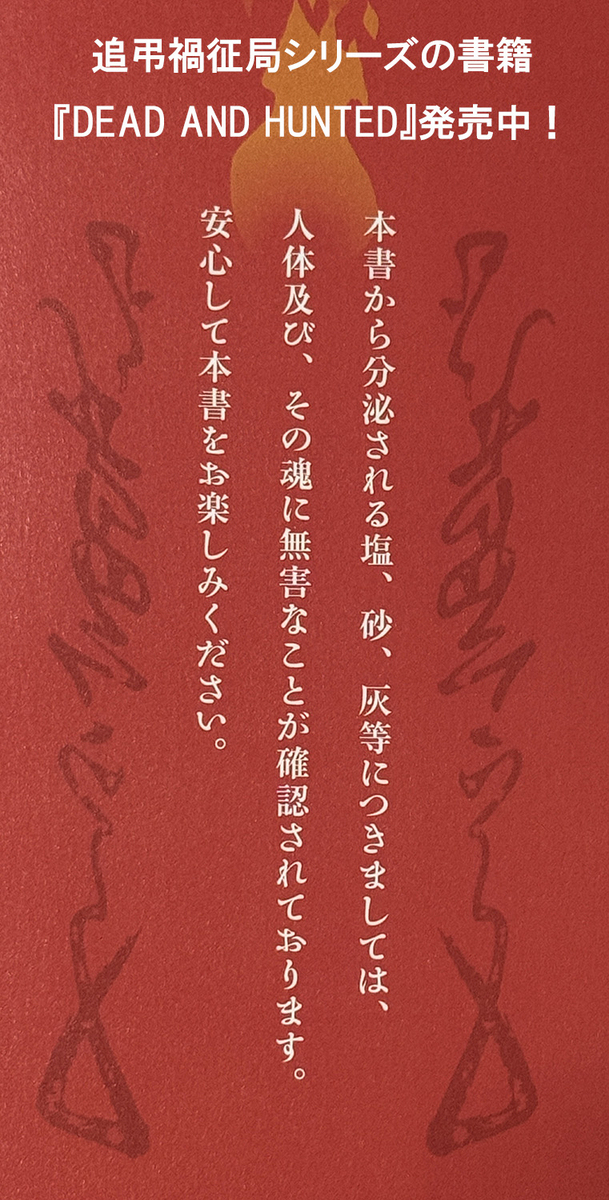 追弔禍征局シリーズの書籍
『DEAD AND HUNTED』発売中！
本書から分泌される塩、砂、灰等につきましては、
人体及び、その魂に無害なことが確認されております。
安心して本書をお楽しみください。